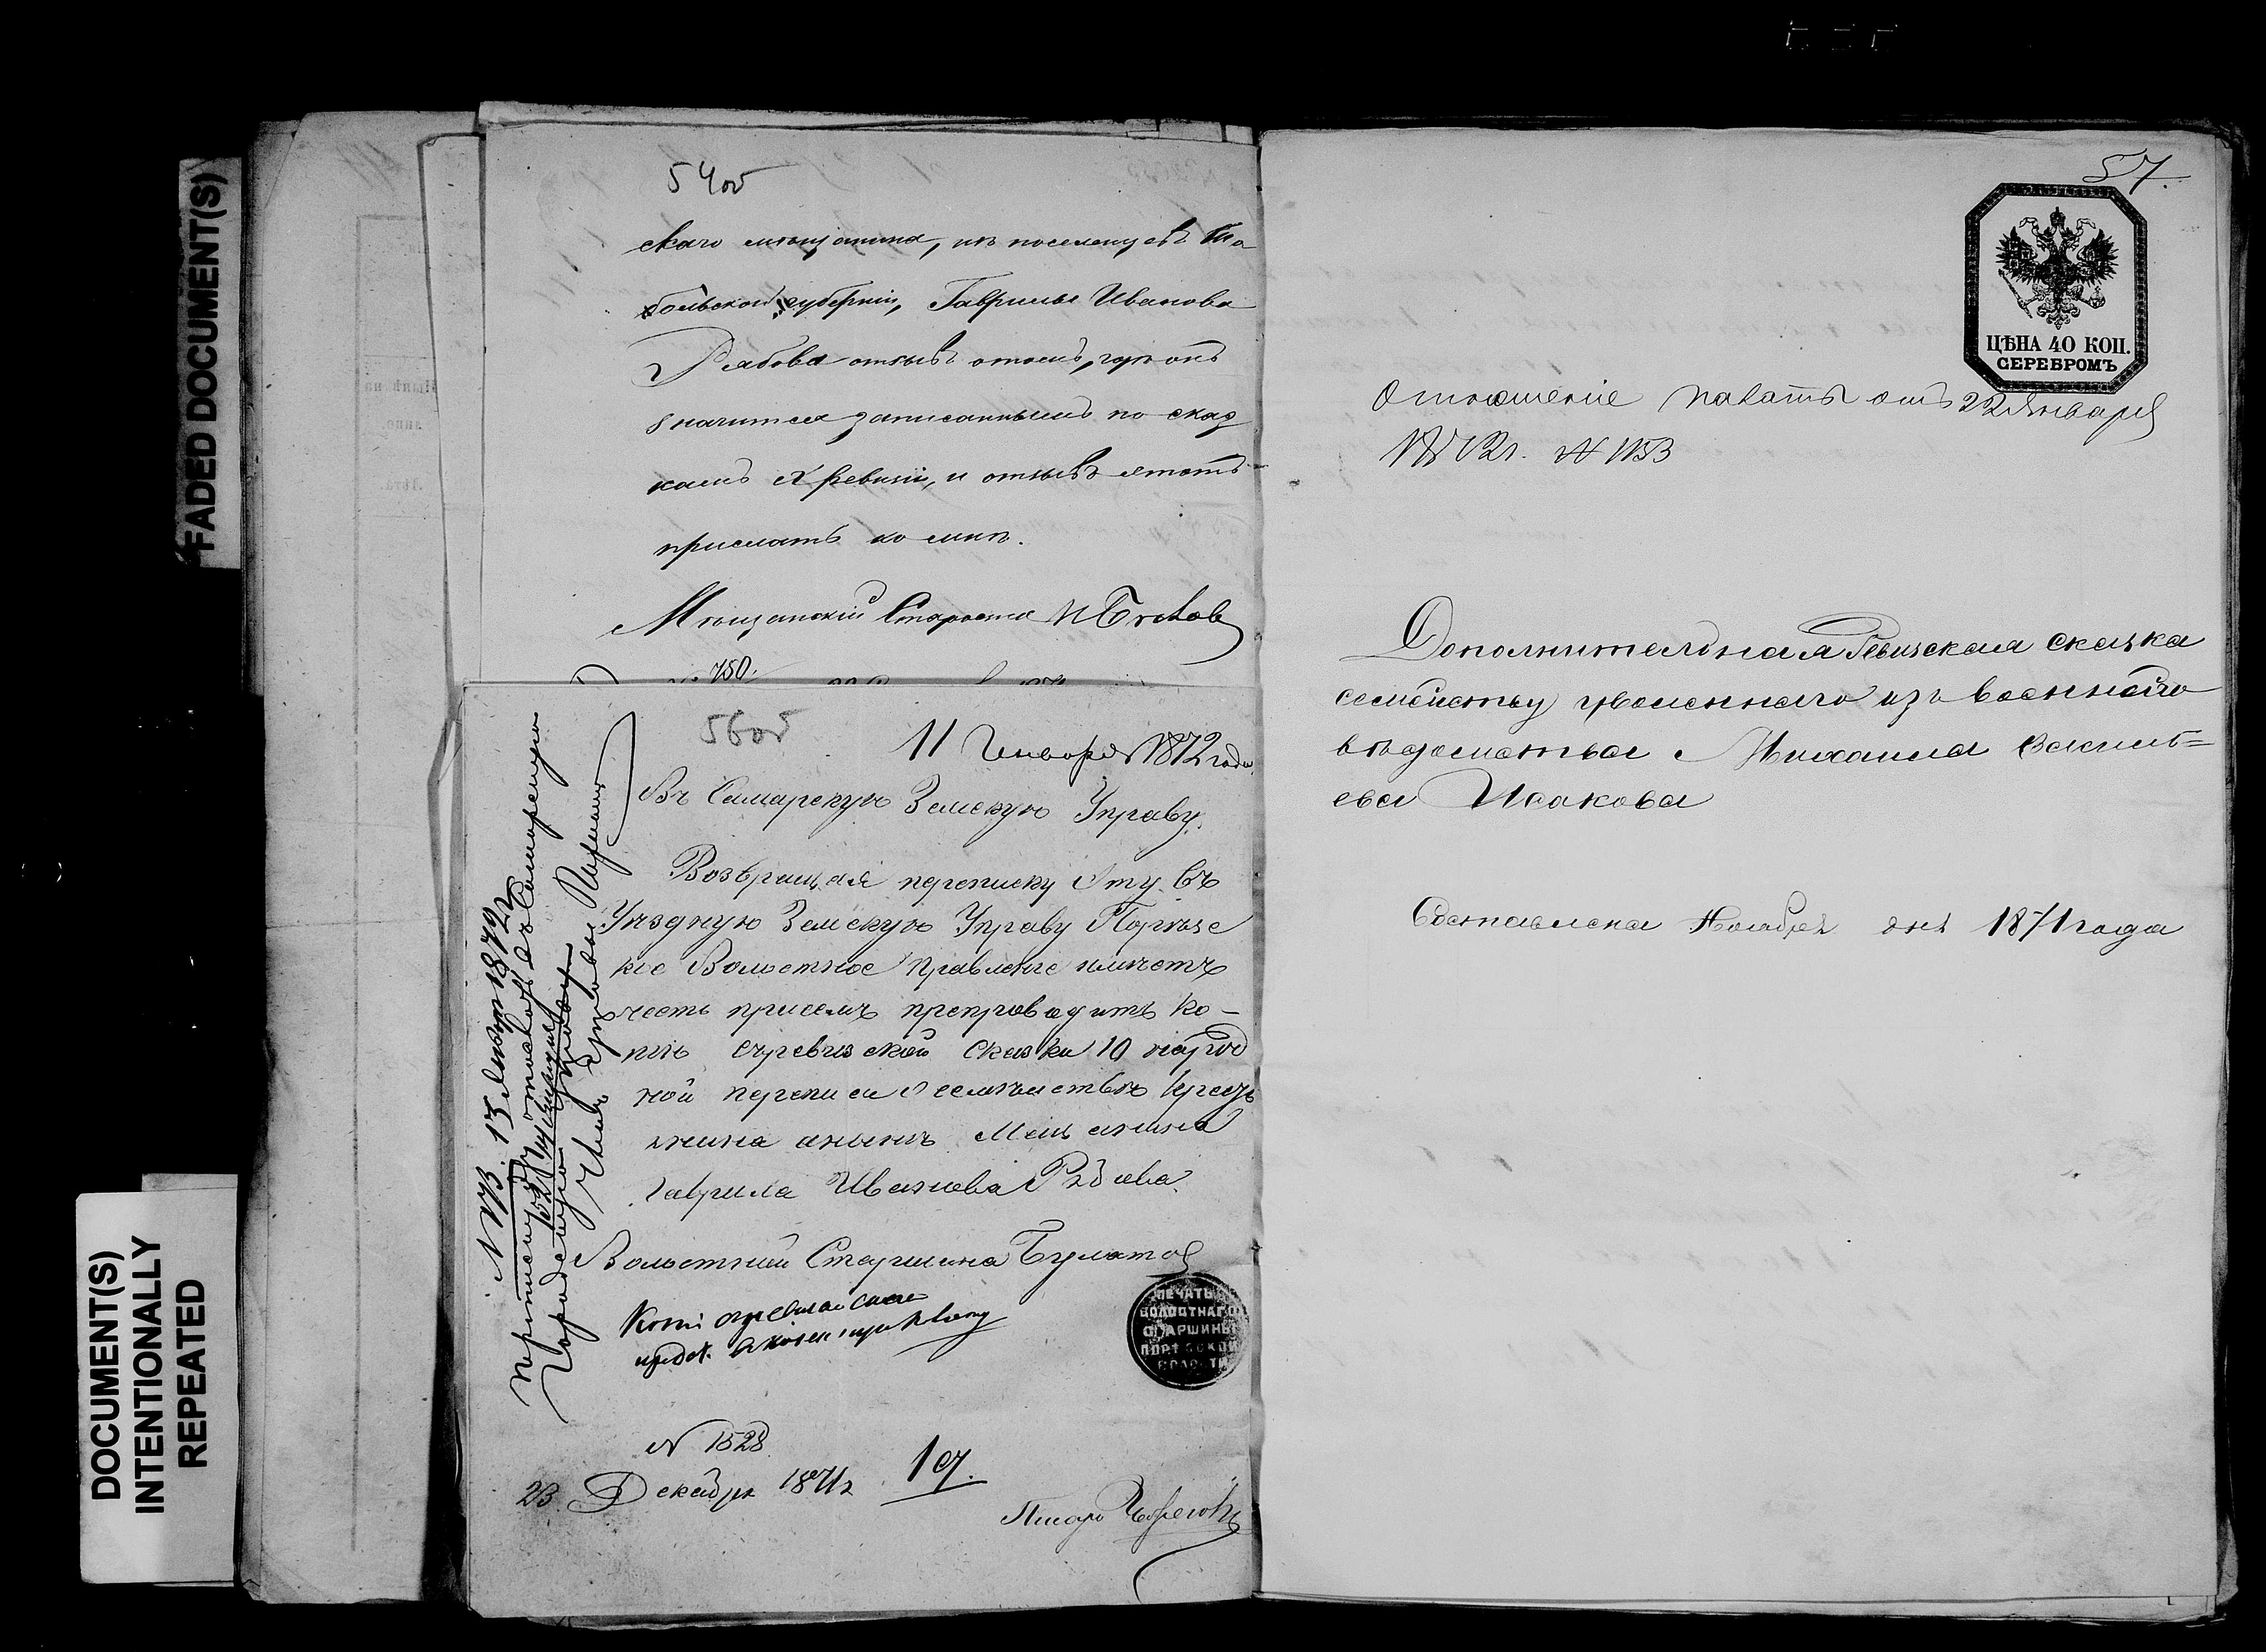 FADED DOCUMENT(S)
DOCUMENT(S)
INTENTIONALLY
REPEATED
54 об
скаго мѣщанина, изъ поселенцевъ То
больской губерніи, Гаврилы Иванова
Рябова отзывъ о томъ, гдѣ онъ
значится записаннымъ по сказ
камъ X ревизіи, и отзывъ этотъ
прислать ко мнѣ.
Мѣщанскій Староста
№ 750.
56 об
11 Генваря 1872 года
Въ Самарскую Земскую Управу.
Возвращая переписку эту въ
Уѣздную Земскую Управу
кое Волостное Правленіе имѣетъ
честь при семъ препроводить ко-
пію съ ревизской сказки 10 народ
ной переписи о семѣйствѣ кресть
янина а нынѣ Мещанина
Гаврила Иванова Рябова
Волостной Старшина Булатов
Копію съ ревизской сказки
ПЕЧАТЬ
ВОЛОСТНАГО
СТАРШИНЫ
№ 1528
23 Декабря 1871 г
Писарь
13 Января 1872 г
Самарскую
Городскую Управу
Членъ Управы
57.
ЦѢНА 40 КОП.
СЕРЕБРОМЪ
Отношеніе палаты отъ 22 Января
1872 г. № 1153
Дополнительная Ревизская сказка
семейству уволеннаго изъ военнаго
вѣдомства Михаила Василь=
ева Исакова
Составлена Ноября дня 1871 года